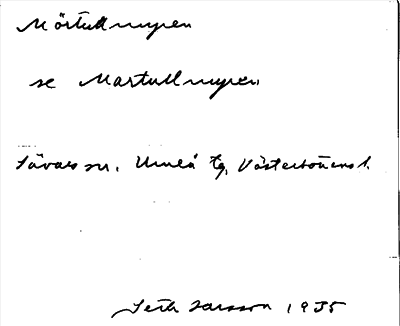 Mörtullmyren
se Martullmyren
Sävars sn. Umeå tg. Västerbottens l.
Seth Larsson 1935